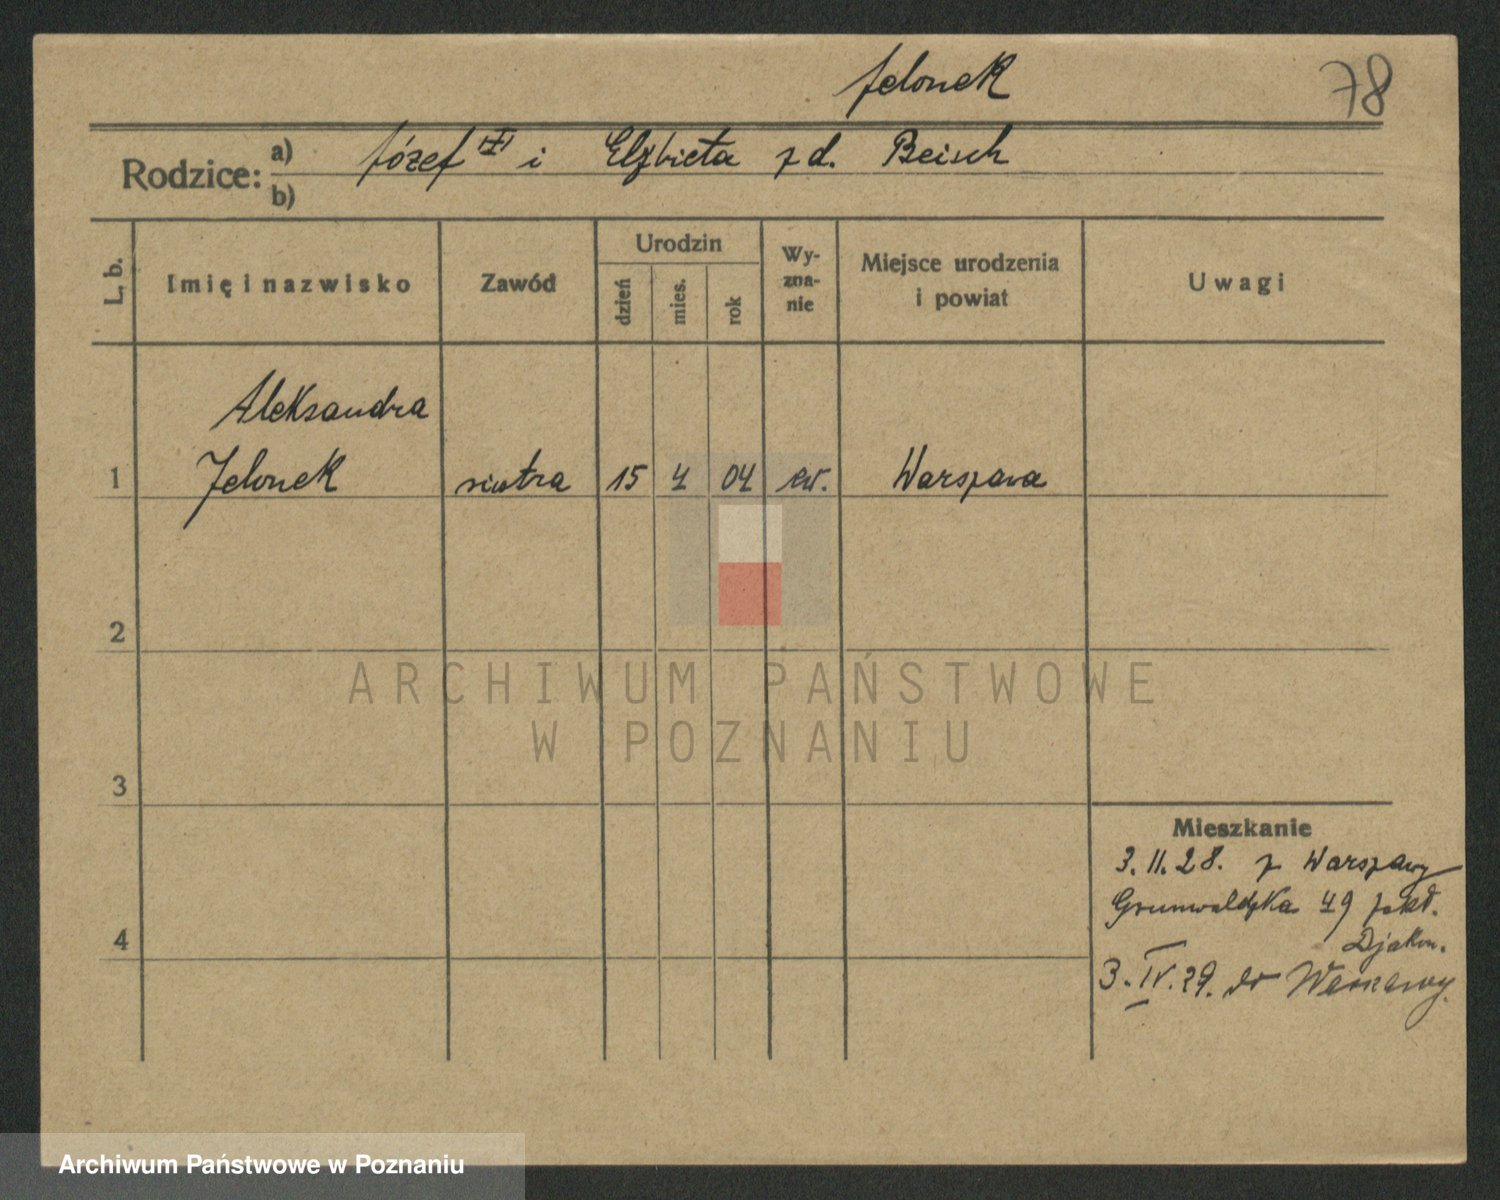 Jelonek
78
Rodzice: a) Józef i Elżbieta z d. Beisch
b)
L. b.
Imię i nazwisko
Zawód
Urodzin
dzień
mies.
rok
Wy-
zna-
nie
Miejsce urodzenia
i powiat
Uwagi
Aleksandra
1 Jelonek siostra 15 4 04 ew. Warszawa
2
3
4
Mieszkanie
3. II. 28. z Warszawy
Grunwaldzka 49 zakł.
Djakon.
3. IV. 29. do Warszawy.
ARCHIWUM PAŃSTWOWE
W POZNANIU
Archiwum Państwowe w Poznaniu